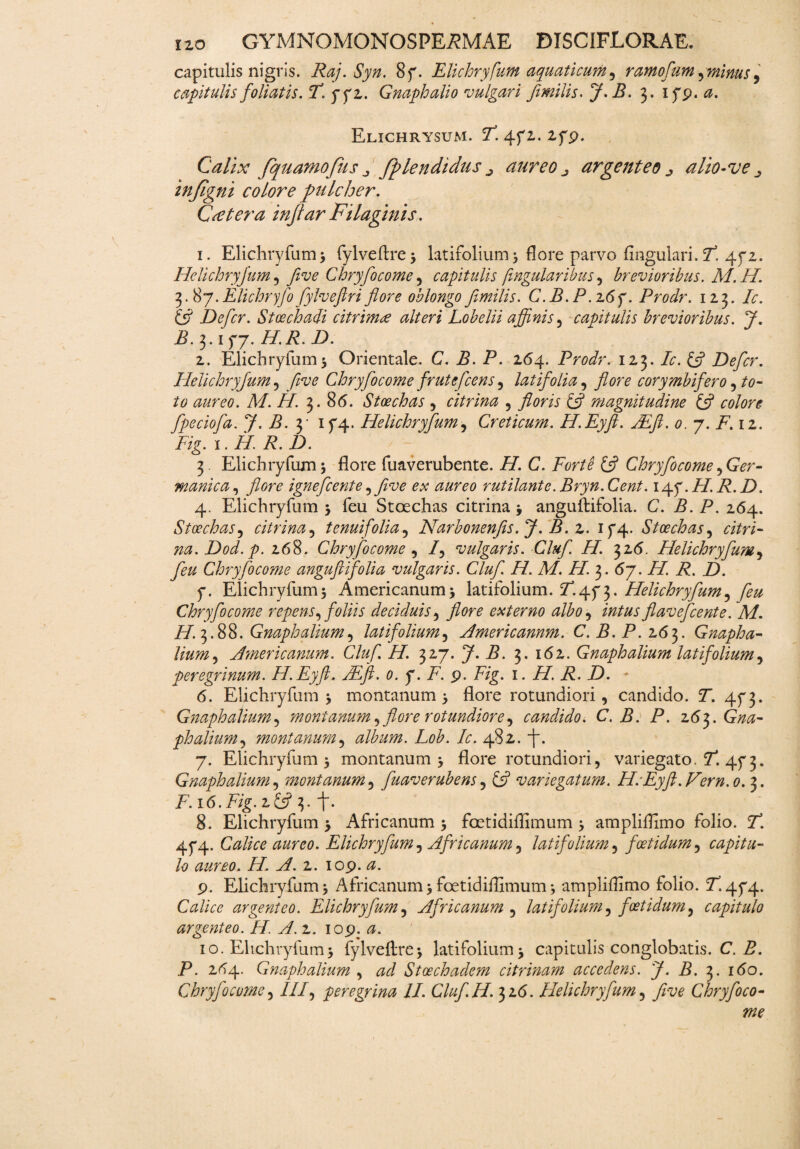 120 GYMNOMONOSPERMAE DISCIFLORAE.
capitulis nigris. Raj. Syn. 85. Elichryſum aquaticum, ramoſum, minus,
capitulis foliatis. T. 552. Gnaphalio vulgari ſimilis. J. B. 3. 159. a.
ELICHRYSUM. T. 452. 259.
Calix ſquamoſus, ſplendidus, aureo, argenteo, alio-ve,
inſigni colore pulcher.
Cætera inſtar Filaginis.
1. Elichryſum; ſylveſtre; latifolium; flore parvo ſingulari. T. 452.
Helichryſum, ſive Chryſocome, capitulis ſingularibus, brevioribus. M. H.
3. 87. Elichryſo ſylveſtri flore oblongo ſimilis. C. B. P. 265. Prodr. 123. Ic.
& Deſcr. Stœchadi citrinæ alteri Lobelii affinis, capitulis brevioribus. J.
B. 3. 157. H. R. D.
2. Elichryſum; Orientale. C. B. P. 264. Prodr. 123. Ic. & Deſcr.
Helichryſum, ſive Chryſocome fruteſcens, latifolia, flore corymbifero, to-
to aureo. M. H. 3. 86. Stœchas, citrina, floris & magnitudine & colore
ſpecioſa. J. B. 3. 154. Helichryſum, Creticum. H. Eyſt. Æſt. o. 7. F. 12.
Fig. 1. H. R. D.
3. Elichryſum; flore ſuaverubente. H. C. Fortè & Chryſocome, Ger-
manica, flore igneſcente, ſive ex aureo rutilante. Bryn. Cent. 145. H. R. D.
4. Elichryſum; ſeu Stœchas citrina; anguſtifolia. C. B. P. 264.
Stœchas, citrina, tenuifolia, Narbonenſis. J. B. 2. 154. Stœchas, citri-
na. Dod. p. 268. Chryſocome, I, vulgaris. Cluſ. H. 326. Helichryſum,
ſeu Chryſocome anguſtifolia vulgaris. Cluſ. H. M. H. 3. 67. H. R. D.
5. Elichryſum; Americanum; latifolium. T. 453. Helichryſum, ſeu
Chryſocome repens, foliis deciduis, flore externo albo, intus flaveſcente. M.
H. 3. 88. Gnaphalium, latifolium, Americannm. C. B. P. 263. Gnapha-
lium, Americanum. Cluſ. H. 327. J. B. 3. 162. Gnaphalium latifolium,
peregrinum. H. Eyſt. Æſt. o. 5. F. 9. Fig. 1. H. R. D.
6. Elichryſum; montanum; flore rotundiori, candido. T. 453.
Gnaphalium, montanum, flore rotundiore, candido. C. B. P. 263. Gna-
phalium, montanum, album. Lob. Ic. 482. †.
7. Elichryſum; montanum; flore rotundiori, variegato. T. 453.
Gnaphalium, montanum, ſuaverubens, & variegatum. H. Eyſt. Vern. o. 3.
F. 16. Fig. 2 & 3. †.
8. Elichryſum; Africanum; fœtidiſſimum; ampliſſimo folio. T.
454. Calice aureo. Elichryſum, Africanum, latifolium, fœtidum, capitu-
lo aureo. H. A. 2. 109. a.
9. Elichryſum; Africanum; fœtidiſſimum; ampliſſimo folio. T. 454.
Calice argenteo. Elichryſum, Africanum, latifolium, fœtidum, capitulo
argenteo. H. A. 2. 109. a.
10. Elichryſum; ſylveſtre; latifolium; capitulis conglobatis. C. B.
P. 264. Gnaphalium, ad Stœchadem citrinam accedens. J. B. 3. 160.
Chryſocome, III, peregrina II. Cluſ. H. 326. Helichryſum, ſive Chryſoco-
me